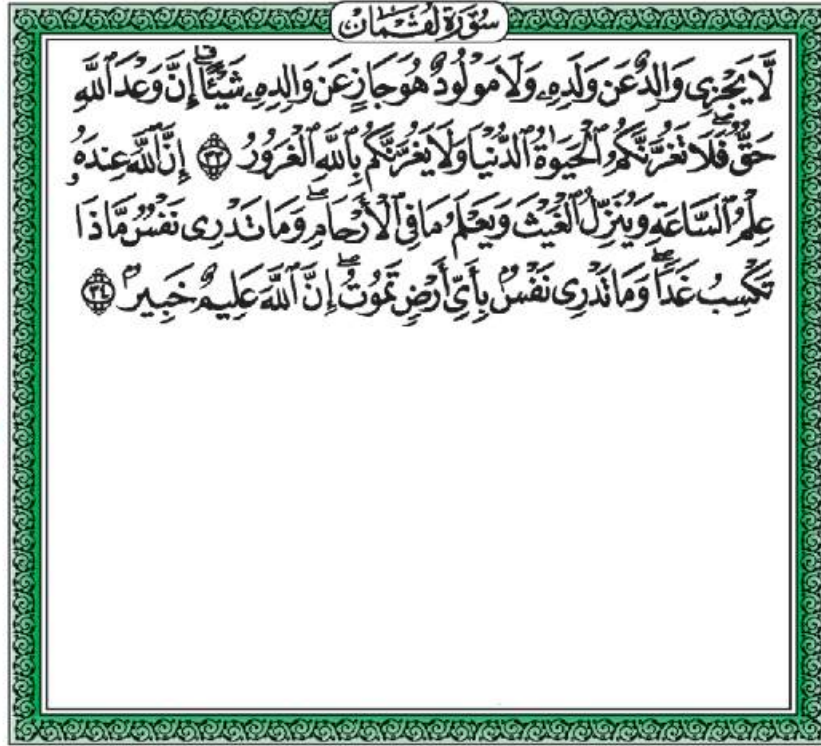 سُورَة لُقْمَان
لَّا يَجْزِى وَالِدٌ عَن وَلَدِهِۦ وَلَا مَوْلُودٌ هُوَ جَازٍ عَن وَالِدِهِۦ شَيْـًٔاۚ إِنَّ وَعْدَ ٱللَّهِ
حَقٌّۖ فَلَا تَغُرَّنَّكُمُ ٱلْحَيَوٰةُ ٱلدُّنْيَا وَلَا يَغُرَّنَّكُم بِٱللَّهِ ٱلْغَرُورُ ﴿٣٣﴾ إِنَّ ٱللَّهَ عِندَهُۥ
عِلْمُ ٱلسَّاعَةِ وَيُنَزِّلُ ٱلْغَيْثَ وَيَعْلَمُ مَا فِى ٱلْأَرْحَامِۖ وَمَا تَدْرِى نَفْسٌ مَّاذَا
تَكْسِبُ غَدًاۖ وَمَا تَدْرِى نَفْسٌۢ بِأَىِّ أَرْضٍ تَمُوتُۚ إِنَّ ٱللَّهَ عَلِيمٌ خَبِيرٌۢ ﴿٣٤﴾